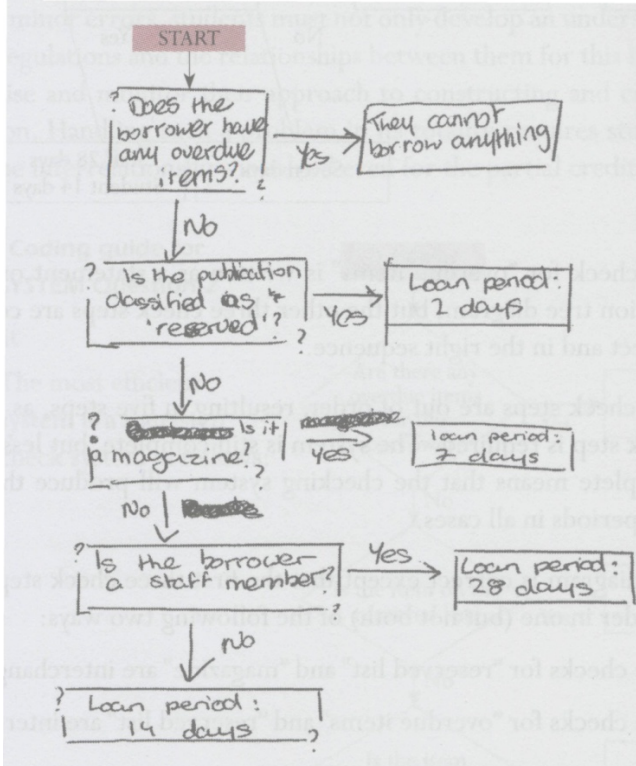 START
Does the
borrower have
any overdue
items?
?
Yes
They cannot
borrow anything
No
? Is the publication
classified as
"reserved"?
?
Yes
Loan period:
2 days
No
? Is it
a magazine?
?
Yes
Loan period:
7 days
No
? Is the borrower
a staff member?
?
Yes
Loan period:
28 days
No
? Loan period:
14 days
?